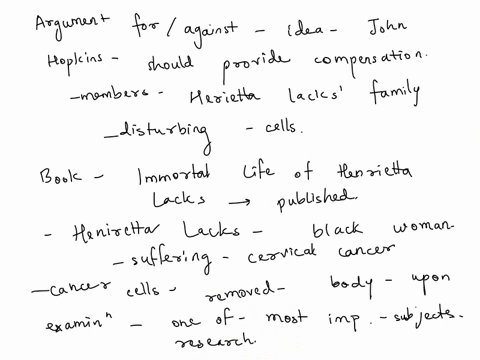 Argument for/against - idea - John
Hopkins - should provide compensation.
- members - Herietta lacks' family
- disturbing - cells.
Book - Immortal life of Henrietta
Lacks → published.
- Heniretta Lacks - black woman
- suffering - cervical cancer
- cancer cells - removed - body - upon
examinⁿ - one of - most imp. - subjects.
research.